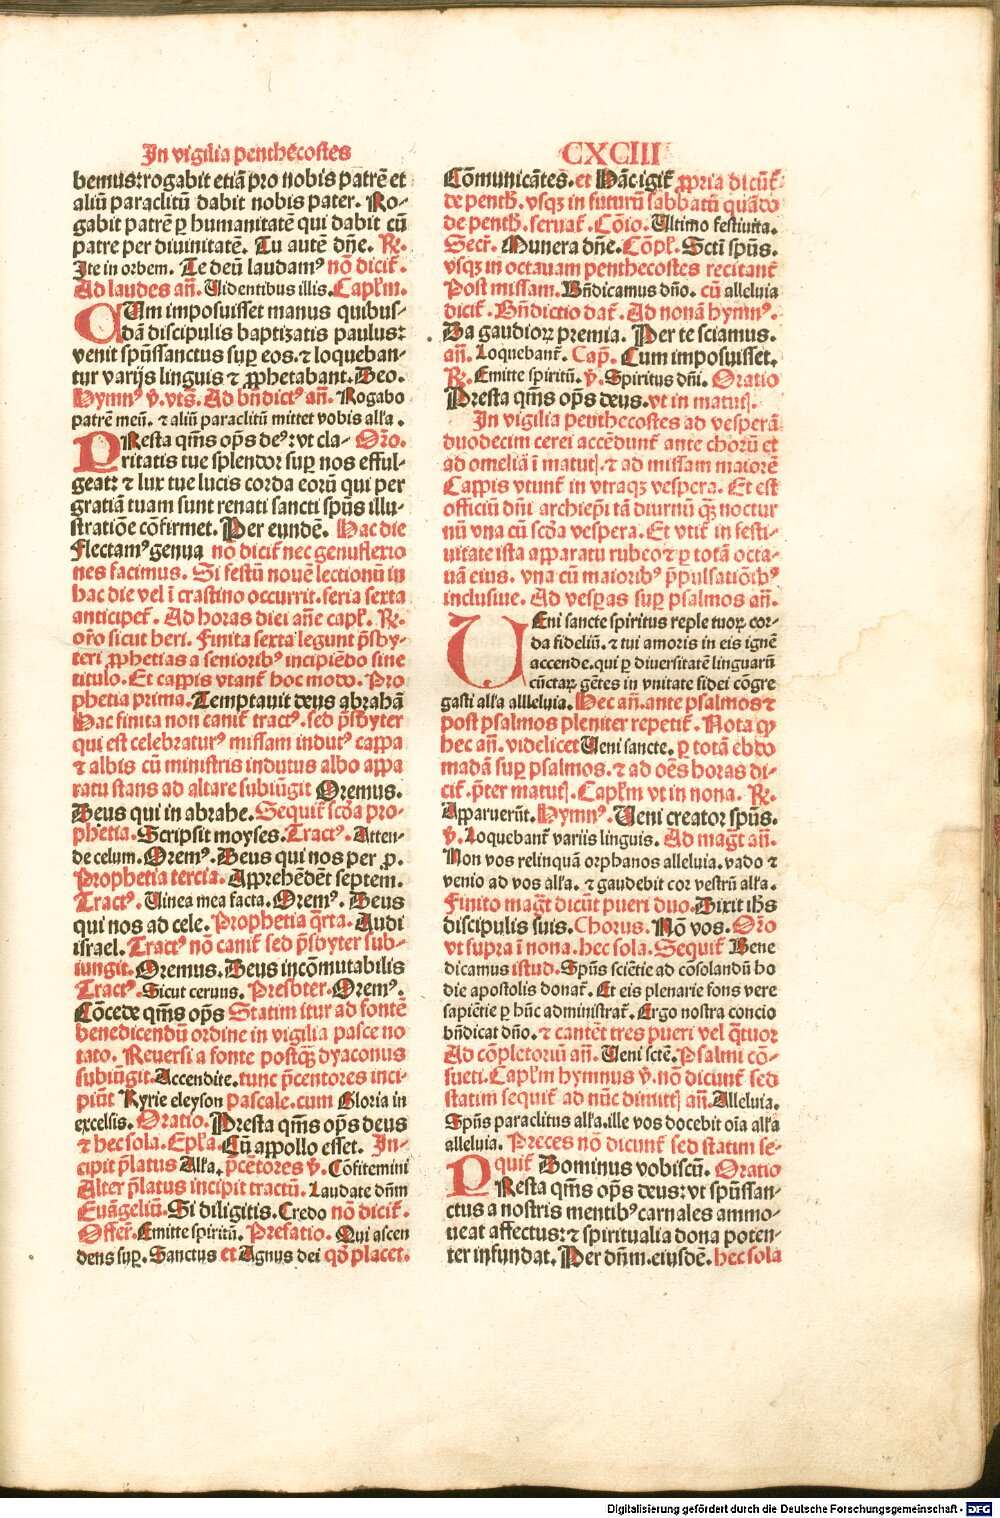 In vigilia penthecostes
CXCIII
bemus:rogabit etiā pro nobis patrē et
aliū paraclitū dabit nobis pater. Ro-
gabit patrē ꝑ humanitatē qui dabit cū
patre per diuinitatē. Tu autē dñe. ℟.
Ite in orbem. Te deū laudamꝰ nō dicit᷑.
Ad laudes añ. Uidentibus illis. Capl'm.
CUm imposuisset manus quibus-
dā discipulis baptizatis paulus:
venit spūssanctus suꝑ eos. ⁊ loqueban-
tur varijs linguis ⁊ ꝓphetabant. Deo.
Hymnꝰ ℣. vtꝭ. Ad bñdictꝰ añ. Rogabo
patrē meū. ⁊ aliū paraclitū mittet vobis alľa.
PResta qm̄s op̄s deꝰ: vt cla- Oro.
ritatis tue splendor suꝑ nos efful-
geat: ⁊ lux tue lucis corda eorū qui per
gratiā tuam sunt renati sancti spūs illu-
stratiōe cōfirmet. Per eundē. Hac die
Flectamꝰ genua nō dicit᷑ nec genuflexio
nes facimus. Si festū nouē lectionū in
hac die vel ī crastino occurrit. feria sexta
anticipet᷑. Ad horas diei añe capľ. ℟.
oro sicut heri. Finita sexta legunt p̄sby-
teri ꝓphetias a senioribꝰ incipiēdo sine
titulo. Et cappis vtant᷑ hoc modo. Pro
phetia prima. Temptauit deus abrahā
Hac finita non canit᷑ tractꝰ. sed p̄sbyter
qui est celebraturꝰ missam indutꝰ cappa
⁊ albis cū ministris indutus albo appa
ratu stans ad altare subiūgit Oremus.
Deus qui in abrahe. Sequit᷑ scd̄a pro-
phetia. Scripsit moyses. Tractꝰ. Atten-
de celum. Oremꝰ. Deus qui nos per ꝓ.
Prophetia tercia. Apprehēdēt septem.
Tractꝰ. Uinea mea facta. Oremꝰ. Deus
qui nos ad cele. Prophetia q̄rta. Audi
israel. Tractꝰ nō canit᷑ sed p̄sbyter sub-
iungit. Oremus. Deus incōmutabilis
Tractꝰ. Sicut ceruus. Presbter. Oremꝰ.
Cōcede qm̄s op̄s Statim itur ad fontē
benedicendū ordine in vigilia pasce no
tato. Reuersi a fonte postꝙ̄ dyaconus
subiūgit. Accendite. tunc p̄centores inci-
piūt Kyrie eleyson pascale. cum Gloria in
excelsis. Oratio. Presta qm̄s op̄s deus
⁊ hec sola. Epľa. Cū appollo esset. In-
cipit p̄latus Alľa. p̄cētores ℣. Cōfitemini
Alter p̄latus incipit tractū. Laudate dn̄m
Euāgeliū. Si diligitis. Credo nō dicit᷑.
Offer᷑. Emitte spiritū. Prefatio. Qui ascen
dens suꝑ. Sanctus et Agnus dei qd̄ placet.
Cōmunicātes. et Hāc igit᷑ ꝓpria dicūt᷑
de penth. vsqꝫ in futurū sabbatū quādo
de penth. seruat᷑. Cōio. Ultimo festiuita.
Secr̄. Munera dñe. Cōpľ. Scti spūs.
vsqꝫ in octauam penthecostes recitant᷑
Post missam. Bn̄dicamus dño. cū alleluia
dicit᷑. Bn̄dictio dat᷑. Ad nonā hymnꝰ.
Da gaudioꝝ premia. Per te sciamus.
añ. Loquebant᷑. Cap̄. Cum imposuisset.
℟. Emitte spiritū. ℣. Spiritus dn̄i. Oratio
Presta qm̄s op̄s deus. vt in matuꝭ.
In vigilia penthecostes ad vesperā
duodecim cerei accēdunt᷑ ante chorū et
ad omeliā ī matutꝭ. ⁊ ad missam maiorē
Cappis vtunt᷑ in vtraqꝫ vespera. Et est
officiū dn̄i archiepī tā diurnū ꝙ̄ noctur
nū vna cū scd̄a vespera. Et vtit᷑ in festi-
uitate ista apparatu rubeo ⁊ ꝑ totā octa-
uā eius. vna cū maioribꝰ p̄pulsatiōibꝰ
inclusiue. Ad vesꝑas suꝑ psalmos añ.
UEni sancte spiritus reple tuoꝝ cor-
da fideliū. ⁊ tui amoris in eis ignē
accende. qui ꝑ diuersitatē linguarū
cūctaꝝ gētes in vnitate fidei cōgre
gasti alľa allleluia. Hec añ. ante psalmos ⁊
post psalmos pleniter repetit᷑. Nota ꝙ
hec añ. videlicet Ueni sancte. ꝑ totā ebdo
madā suꝑ psalmos. ⁊ ad oēs horas di-
cit᷑. p̄ter matutꝭ. Capľm vt in nona. ℟.
Apparuerūt. Hymnꝰ. Ueni creator spūs.
℣. Loquebant᷑ variis linguis. Ad mag̅t añ.
Non vos relinquā orphanos alleluia. vado ⁊
venio ad vos alľa. ⁊ gaudebit cor vestrū alľa.
Finito mag̅t dicūt pueri duo. Dixit ih̄s
discipulis suis. Chorus. Nō vos. Oro
vt supra ī nona. hec sola. Sequit᷑ Bene
dicamus istud. Spūs sciētie ad cōsolandū ho
die apostolis donat᷑. Et eis plenarie fons vere
sapiētie ꝑ hūc administrat᷑. Ergo nostra concio
bn̄dicat dño. ⁊ cantēt tres pueri vel q̄tuor
Ad cōpletoriū añ. Ueni sctē. Psalmi cō-
sueti. Capľm hymnus ℣. nō dicunt᷑ sed
statim sequit᷑ ad nūc dimittꝭ añ. Alleluia.
Spūs paraclitus alľa. ille vos docebit oīa alľa
alleluia. Preces nō dicunt᷑ sed statim se-
quit᷑ Dominus vobiscū. Oratio
PResta qm̄s op̄s deus: vt spūssan-
ctus a nostris mentibꝰ carnales ammo-
ueat affectus: ⁊ spiritualia dona poten-
ter infundat. Per dn̄m. eiusdē. hec sola
Digitalisierung gefördert durch die Deutsche Forschungsgemeinschaft - DFG